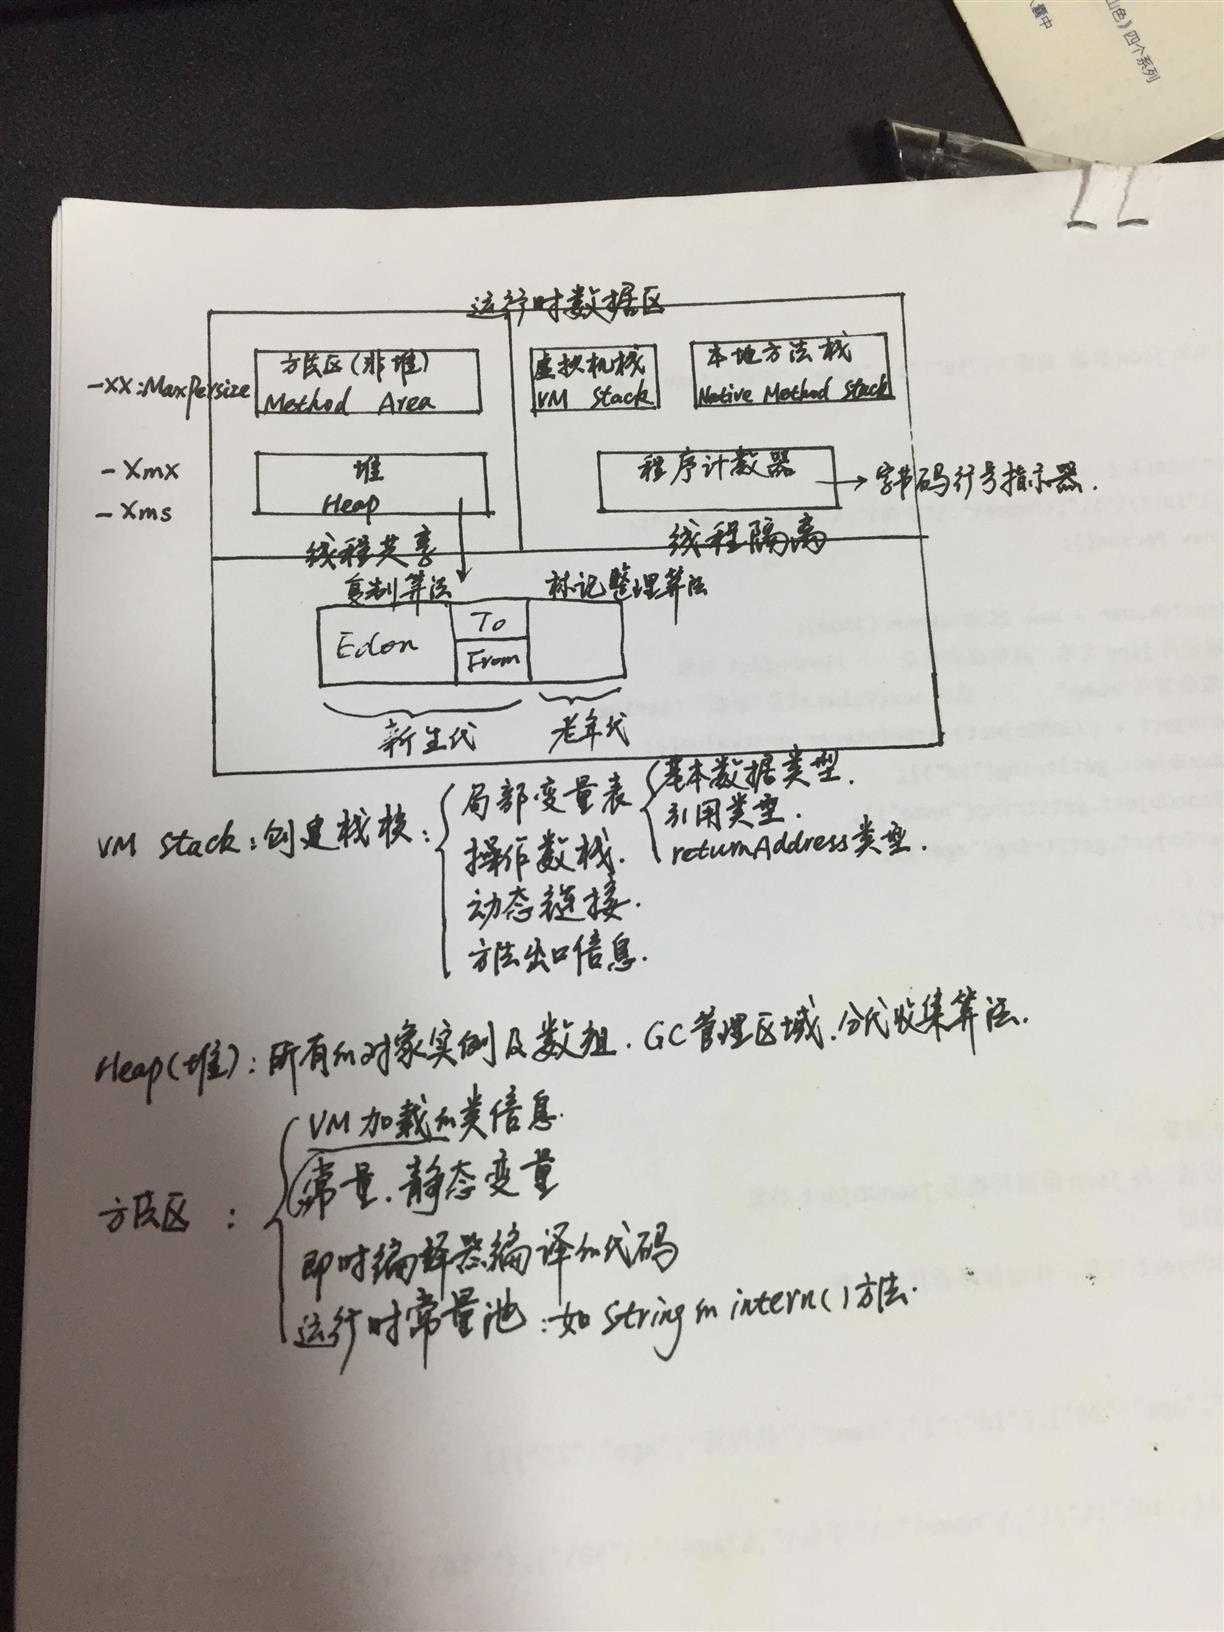 山色》四个系列
囊中
运行时数据区
-XX:MaxPersize
方法区(非堆)
Method Area
虚拟机栈
VM Stack
本地方法栈
Native Method Stack
-Xmx
-Xms
堆
Heap
程序计数器
→字节码行号指示器.
线程共享
线程隔离
复制算法
标记整理算法
Eden
To
From
新生代
老年代
VM Stack:创建栈桢:
局部变量表
基本数据类型.
引用类型.
returnAddress类型.
操作数栈.
动态链接.
方法出口信息.
Heap(堆):所有的对象实例及数组.GC管理区域.分代收集算法.
方法区:
VM加载的类信息.
常量.静态变量
即时编译器编译的代码
运行时常量池:如String的intern()方法.